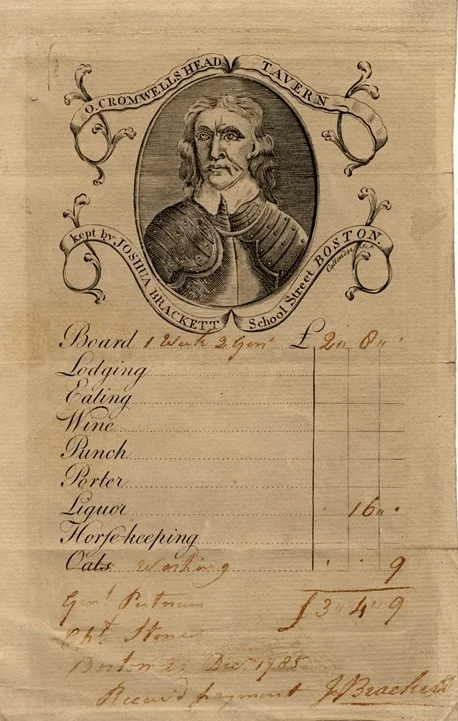 O. CROMWELLS HEAD TAVERN
kept by JOSHUA BRACKETT School Street BOSTON.
Board 1 Week 2 Gen.s £ 2 " 8 " .
Lodging
Eating
Wine
Punch
Porter
Liquor . 16 " .
Horse-keeping
Oats Washing . . 9
Genl Putnam £ 3 " 4 " 9
Stone
Boston 22 Decr 1785
Receiv'd payment J Brackett